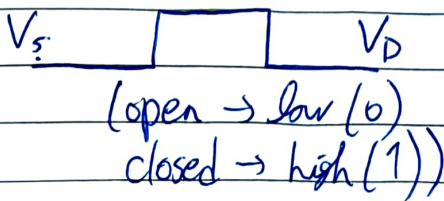 Vs VD
(open → low (0)
closed → high (1))